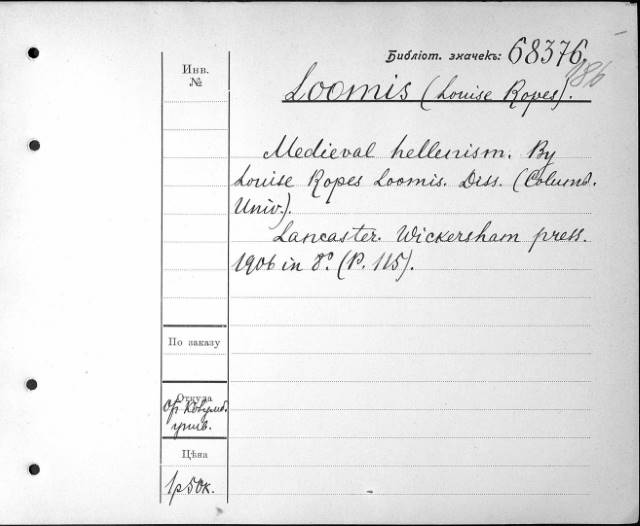 Библіот. значекъ: 68376.
186
Инв.
№
Loomis (Louise Ropes).
Medieval hellenism. By
Louise Ropes Loomis. Diss. (Columb.
Univ.).
Lancaster. Wickersham press.
1906 in 8º. (P. 115).
По заказу
Откуда
От Колумб.
унив.
Цѣна
1р 50к.